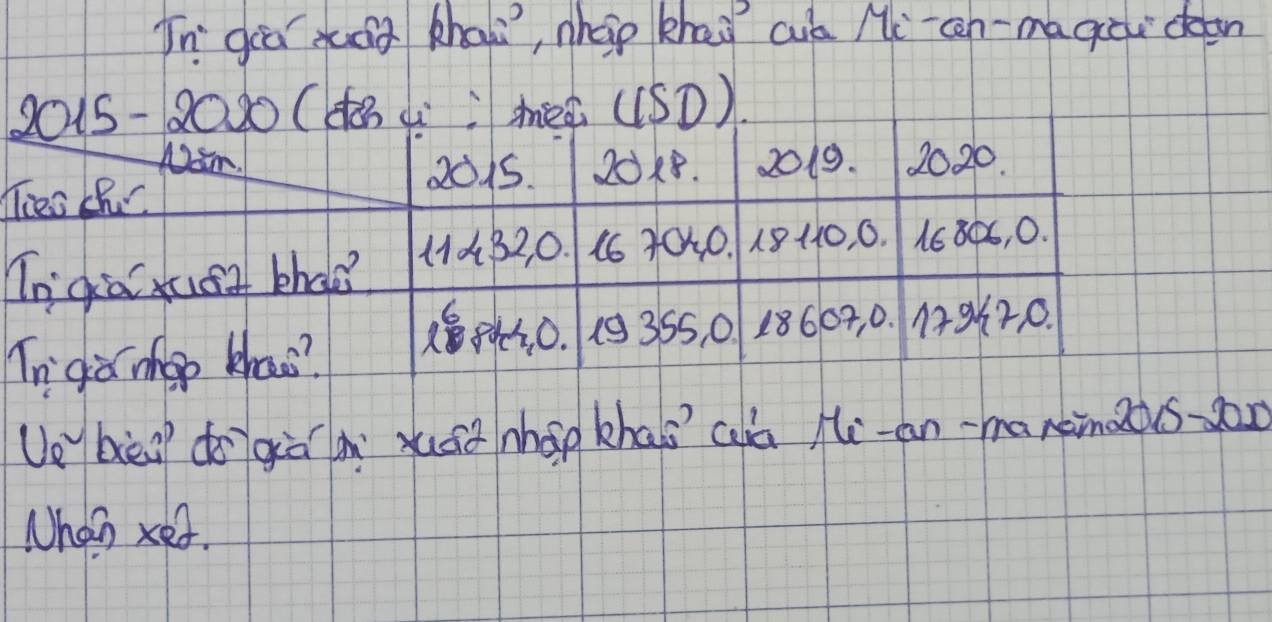 Trị giá xuất khẩu, nhập khẩu của Mi-an-ma giai đoạn
2015-2020 (đơn vị : triệu USD).
Năm. 2015. 2018. 2019. 2020.
Tiêu chí.
Trị giá xuất khẩu 11432,0. 16 704,0. 18110,0. 16 806,0.
Trị giá nhập khẩu? 16844,0. 19 355,0 18607,0. 17947,0.
Vẽ biểu đồ giá trị xuất nhập khẩu của Mi-an-ma năm 2015-2020
Nhận xét.